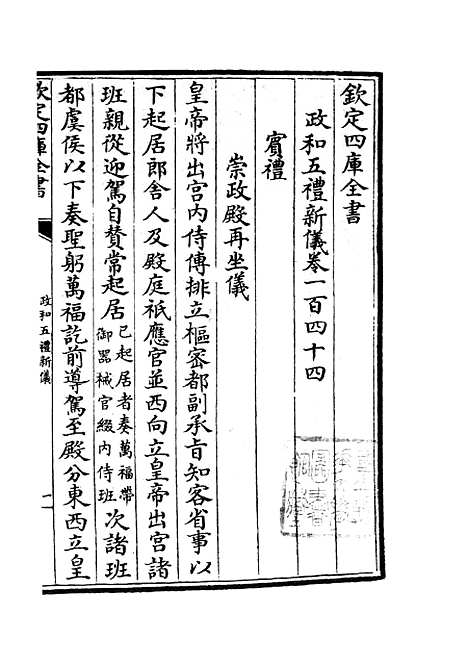 欽定四庫全書
政和五禮新儀卷一百四十四
賓禮
崇政殿再坐儀
皇帝將出宮内侍傳排立樞密都副承旨知客省事以
下起居郎舍人及殿庭祇應官並西向立皇帝出宮諸
班親從迎駕自賛常起居已起居者奏萬福帶御器械官綴内侍班次諸班
都虞侯以下奏聖躬萬福訖前導駕至殿分東西立皇
欽定四庫全書
政和五禮新儀
一